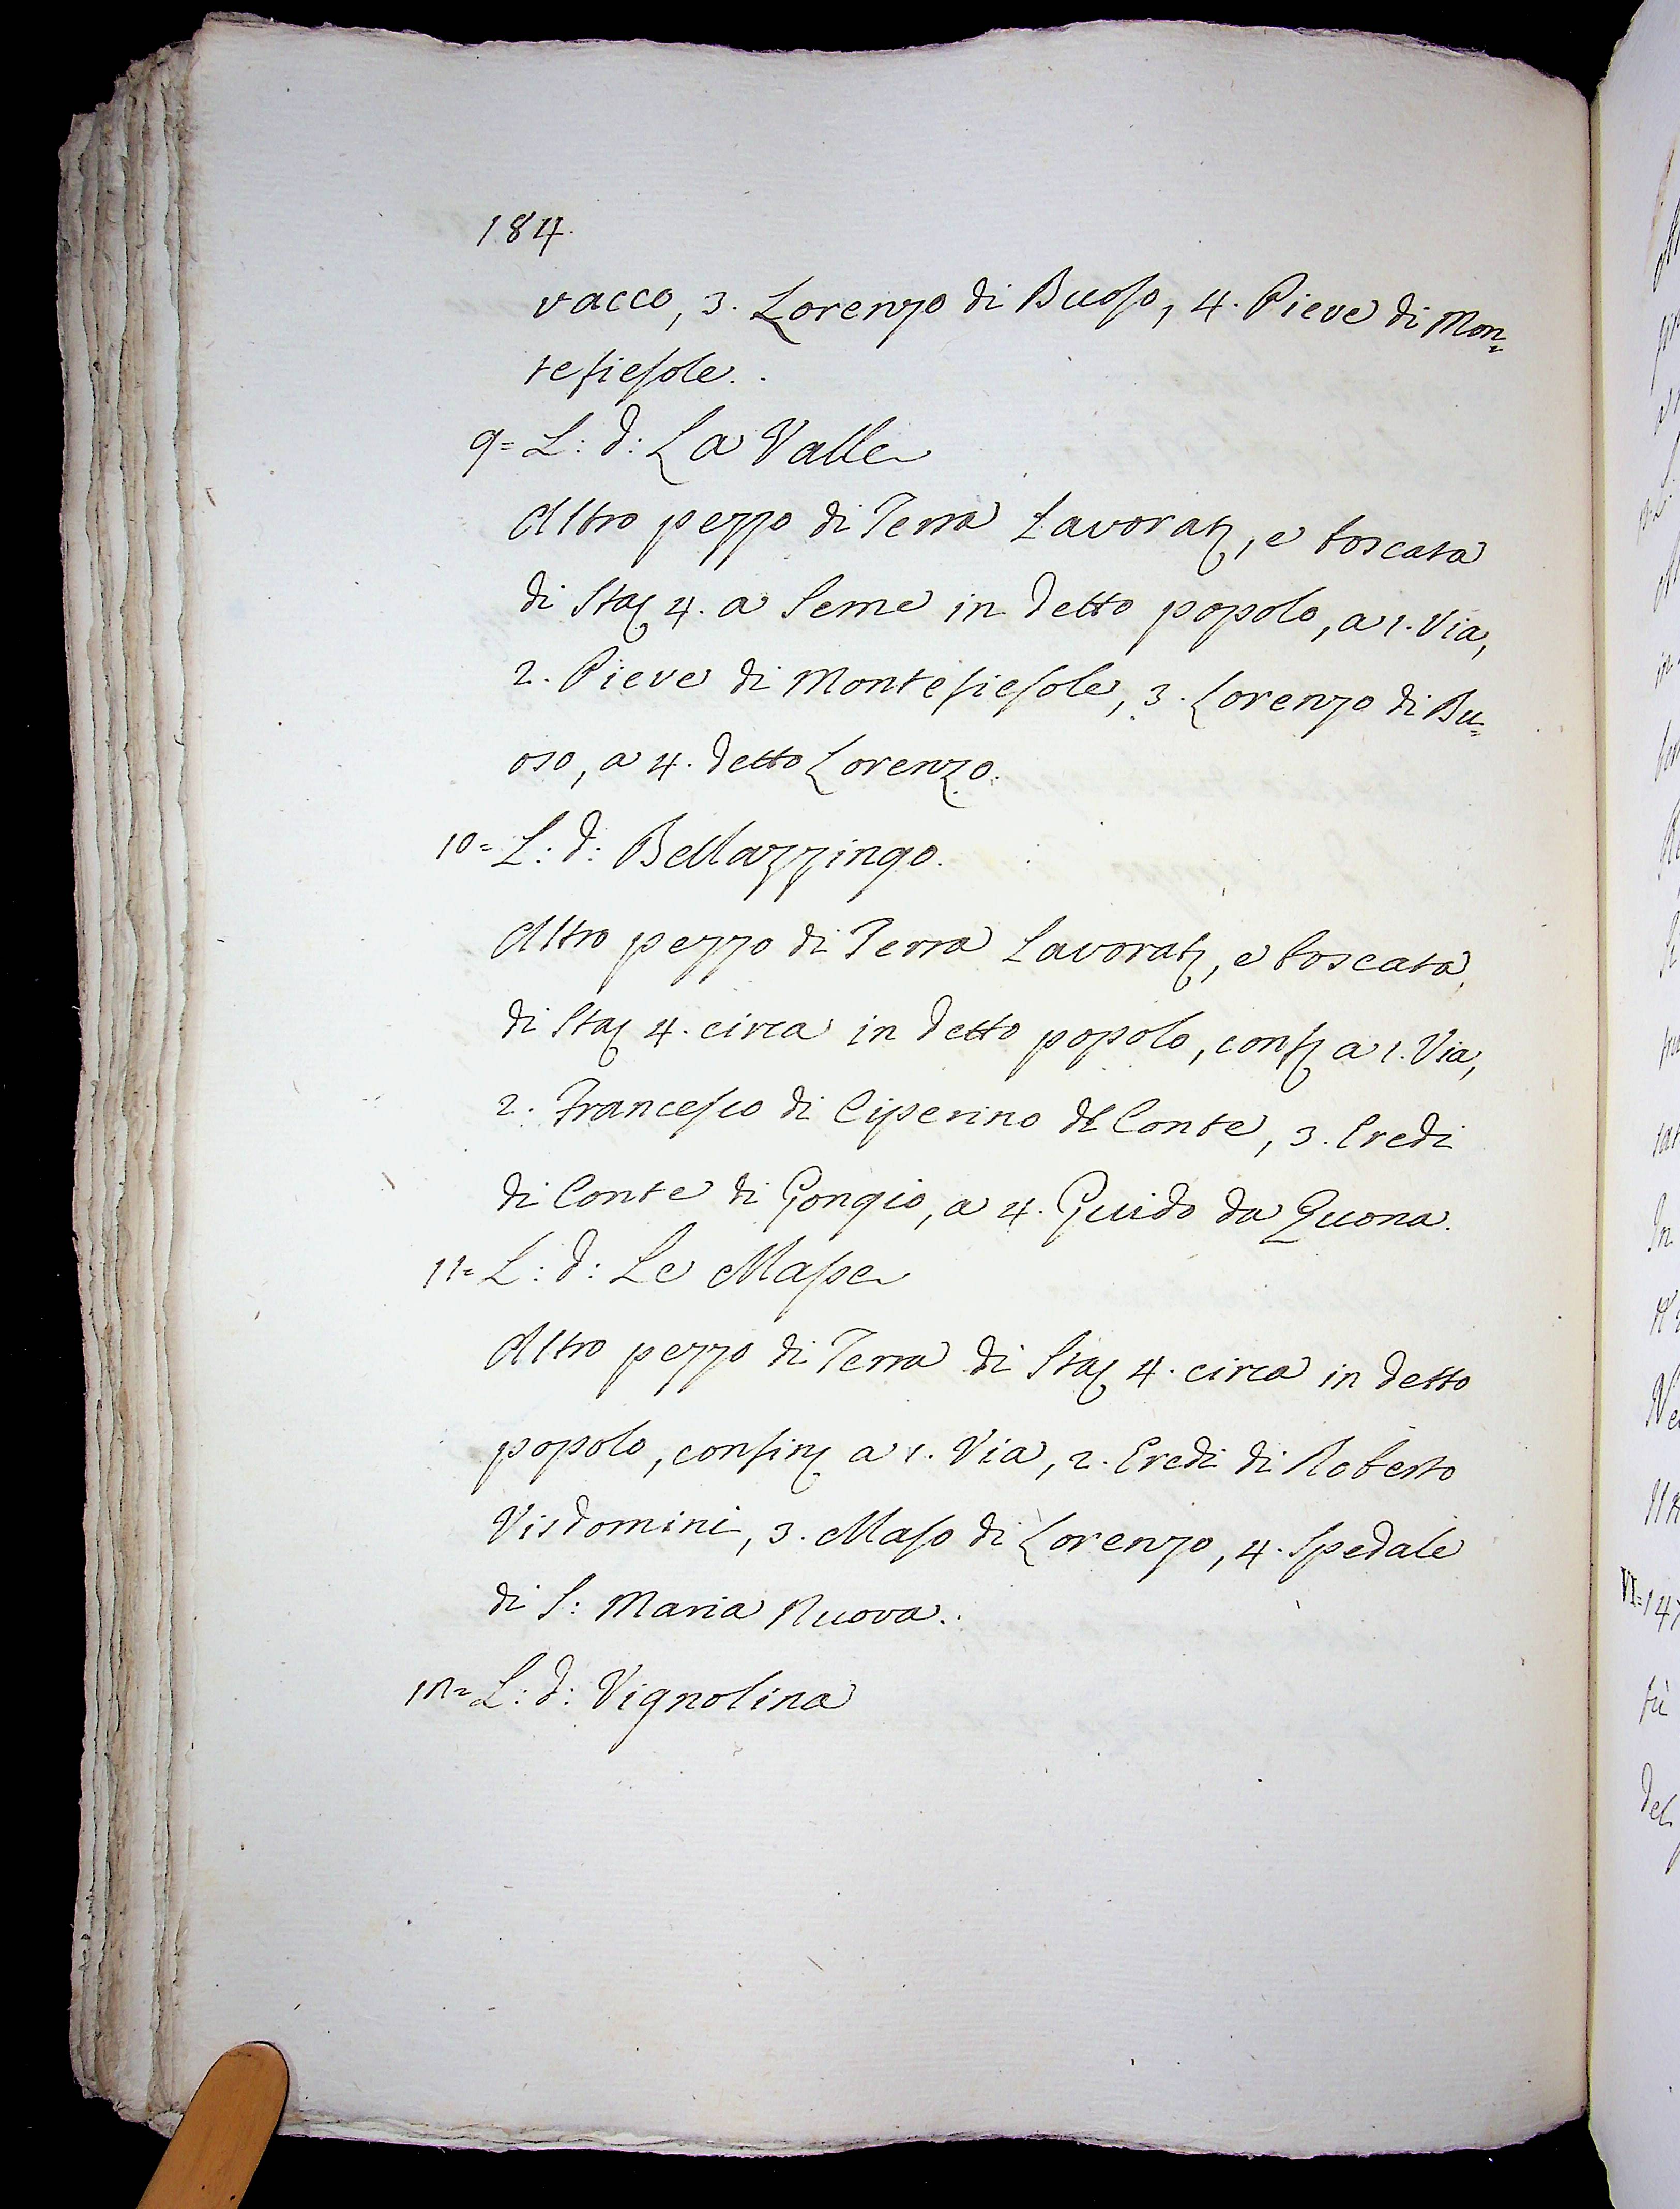 184.
vacco, 3. Lorenzo di Buoso, 4. Pieve di Mon=
tefiesole.
9= L: d: La Valle
Altro pezzo di Terra Lavorat, e boscata
di Sta 4. a Seme in detto popolo, a 1. Via,
2. Pieve di Montefiesole, 3. Lorenzo di Bu=
oso, a 4. detto Lorenzo.
10= L: d: Bellazzingo.
Altro pezzo di Terra Lavorat, e boscata
di Sta 4. circa in detto popolo, conf a 1. Via,
2. Francesco di Ciperino del Conte, 3. Eredi
di Conte di Gongio, a 4. Guido da Quona.
11= L: d: Le Masse
Altro pezzo di Terra di Sta 4. circa in detto
popolo, confin a 1. Via, 2. Eredi di Roberto
Visdomini, 3. Maso di Lorenzo, 4. Spedale
di S: Maria Nuova.
12= L: d: Vignolina